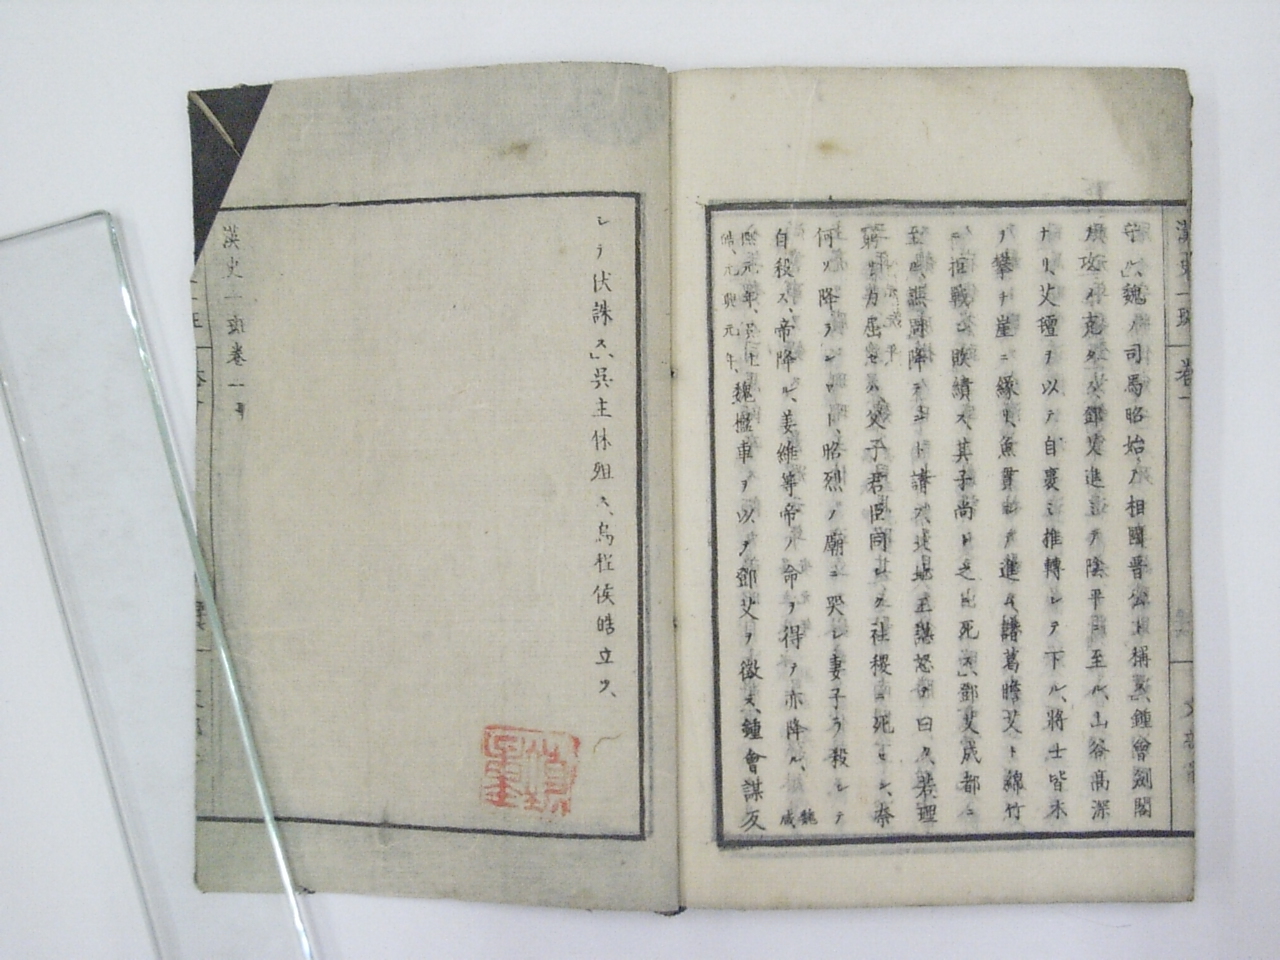 守ル、魏ノ司馬昭始メテ相國晋公ト稱ス、鍾會劍閣
ヲ攻メ克タス、鄧艾進ミテ陰平ニ至ル、山谷高深
ナリ、艾氊ヲ以テ自裹ミ推轉シテ下ル、將士皆木
ヲ攀チ崖ニ縁リ、魚貫シテ進ム、諸葛瞻艾ト綿竹
ニ拒戰シ敗績ス、其子尚ト之ニ死ス、鄧艾成都ニ
至ル、譙周降ラント請フ、北地王諶怒テ曰ク、若理
窮リ力屈セハ父子君臣同シク社稷ニ死セン、奈
何ソ降ランヤト、昭烈ノ廟ニ哭シ妻子ヲ殺シテ
自殺ス、帝降ル、姜維等帝ノ命ヲ得テ亦降ル、魏咸
熙元年、呉主皓、元興元年、魏檻車ヲ以テ鄧艾ヲ徴ス、鍾會謀反
シテ伏誅ス、呉主休殂ス、烏程侯皓立ツ、
漢史一班卷一
漢史一班 卷一